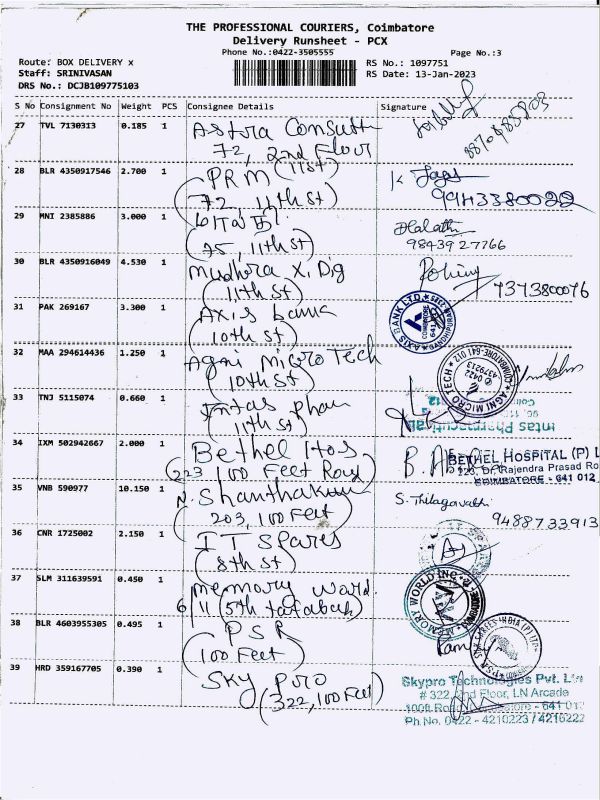 THE PROFESSIONAL COURIERS, Coimbatore
Delivery Runsheet - PCX
Phone No.:0422-3505555
Page No.:3
Route: BOX DELIVERY x
RS No.: 1097751
Staff: SRINIVASAN
RS Date: 13-Jan-2023
DRS No.: DCJB109775103
S No Consignment No Weight PCS Consignee Details Signature
27 TVL 7130313 0.185 1 Astra Consult
72, 2nd Floor
(11st)
28 BLR 4350917546 2.700 1 PRM
(72, 11th St) 9943380022
29 MNI 2385886 3.000 1
(75, 11th St) 98439 27766
30 BLR 4350916049 4.530 1 Mudhra X. Dig
(11th St) 7373800076
31 PAK 269167 3.300 1 Axis bank
(10th St)
AXIS BANK LTD
32 MAA 294614436 1.250 1 Agni Micro Tech
(10th St)
AGNI MICRO TECH COIMBATORE-641 012
0422
4379213
33 TNJ 5115074 0.660 1 Intas Phar
(11th St)
Intas Pharmaceutical
34 IXM 502942667 2.000 1 Bethel Hos
(223 100 Feet Road)
BETHEL HOSPITAL (P) L
Rajendra Prasad Ro
COIMBATORE - 641 012
35 VNB 590977 10.150 1 N. Shanthakum S. Thilagavathi
(203, 100 Feet) 9488733913
36 CNR 1725002 2.150 1 IT Spares
(8th St)
37 SLM 311639591 0.450 1 Memory Word
6/11 (5th tatabad)
MEMORY WORLD INC.
38 BLR 4603955305 0.495 1 PSR Ram
(100 Feet)
39 HRD 359167705 0.390 1 Sky Pro
(322, 100 Feet)
Skypro Technologies Pvt. Ltd
# 322, 2nd Floor, LN Arcade
100ft Road, Coimbatore - 641 012
Ph.No. 0422 - 4210223 / 4210222